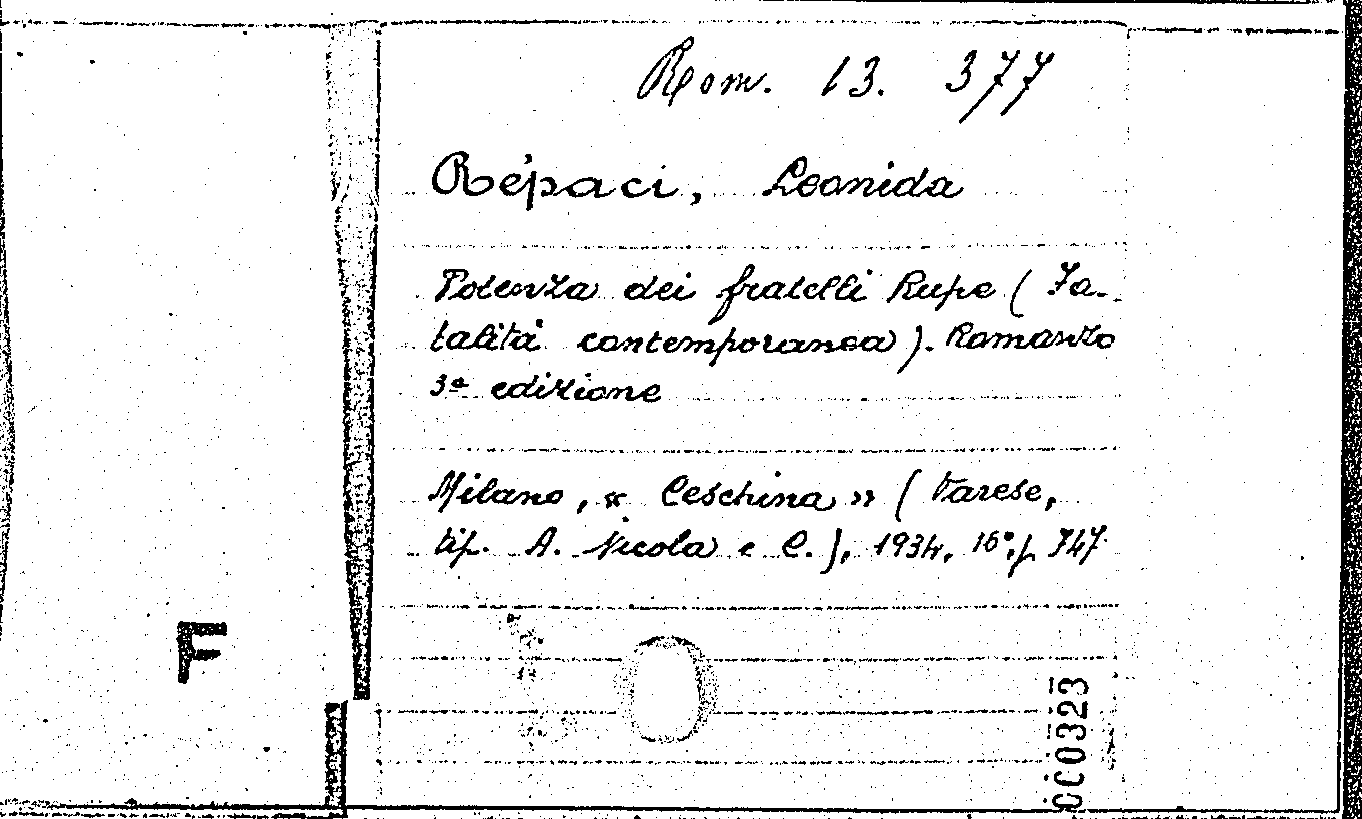 Rom. 13. 377
Rèpaci, Leonida
Potenza dei fratelli Rupe (Fa-
talità contemporanea). Romanzo
3ª edizione
Milano, « Ceschina » (Varese,
tip. A. Nicola e C.), 1934, 16°, p. 747
F
000323